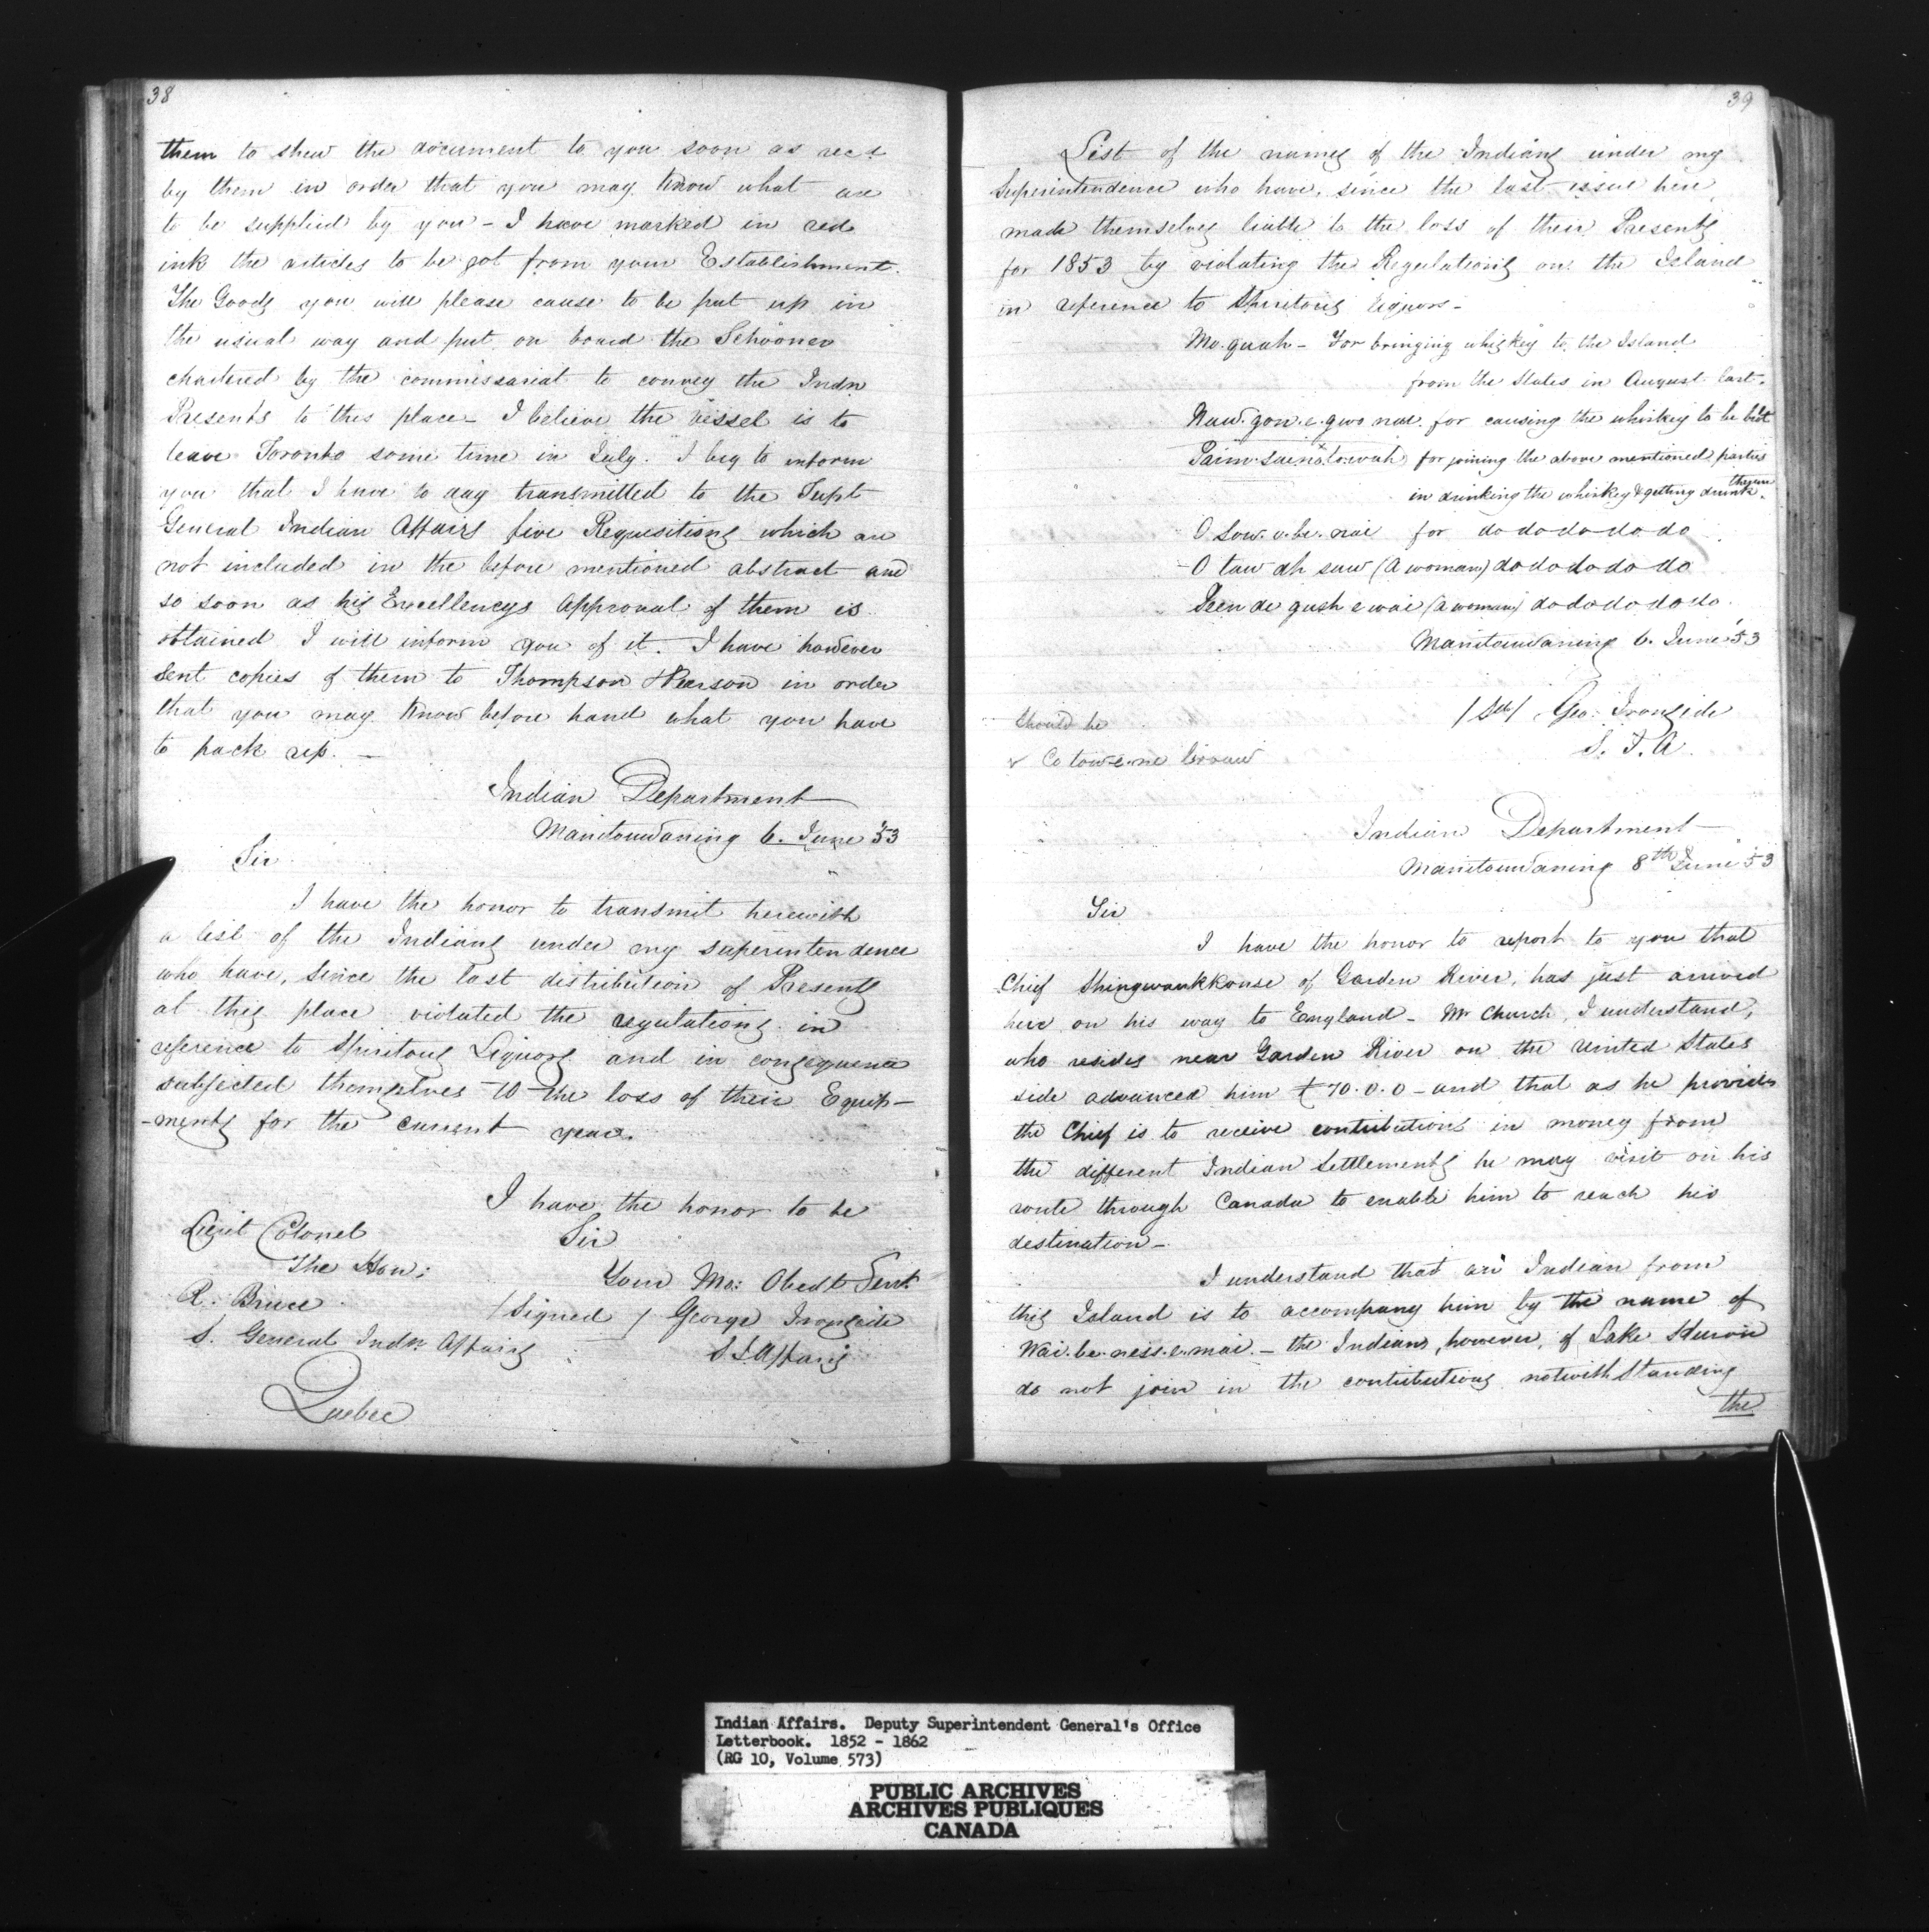 38
them to shew the document to you soon as recd
by them in order that you may know what are
to be supplied by you - I have marked in red
ink the articles to be got from your Establishment.
The Goods you will please cause to be put up in
the usual way and put on board the Schooner
chartered by the commissariat to convey the Indn
Presents to this place - I believe the vessel is to
leave Toronto some time in July. I beg to inform
you that I have to day transmitted to the Supt
General Indian Affairs five Requisitions which are
not included in the before mentioned abstract and
so soon as his Excellencys Approval of them is
obtained I will inform you of it. I have however
sent copies of them to Thompson Pearson in order
that you may know before hand what you have
to pack up. -
Indian Department
Manitouwaning 6. June '53
Sir
I have the honor to transmit herewith
a list of the Indians under my superintendence
who have, since the last distribution of Presents
at this place violated the regulations in
reference to Spiritous Liquors and in consequence
subjected themselves to the loss of their Equip-
-ments for the current year.
I have the honor to be
Sir
Your Mo: Obedt Servt
/Signed/ George Ironside
S I Affairs
Lieut Colonel
The Hon:
R. Bruce
S. General Indn Affairs
Quebec
39
List of the names of the Indians under my
Superintendence who have, since the last issue here,
made themselves liable to the loss of their Presents
for 1853 by violating the Regulations on the Island
in reference to Spiritous liquors -
Mo.quah - For bringing whiskey to the Island
from the States in August last.
Naw.gon.e.gwo nae. for causing the whiskey to be bot
for joining the above mentioned parties
in drinking the whiskey & getting drunk thereon.
O saw.o.be.nai for do do do do do
O taw ah saw (a woman) do do do do do
(a woman) do do do do do.
Manitouwaning 6. June '53
/Sd/ Geo: Ironside
S. I. A.
should be
x
Indian Department
Manitouwaning 8th June '53
Sir
I have the honor to report to you that
Chief Shingwaukkonse of Garden River, has just arrived
here on his way to England - Mr Church, I understand,
who resides near Garden River on the United States
side advanced him £70.0.0 - and that as he provides
the Chief is to receive contributions in money from
the different Indian Settlements he may visit on his
route through Canada to enable him to reach his
destination -
I understand that an Indian from
this Island is to accompany him by the name of
Wai.be.ness.e.mai. - the Indians, however, of Lake Huron
do not join in the contributions notwithstanding
the
Indian Affairs. Deputy Superintendent General's Office
Letterbook. 1852 - 1862
(RG 10, Volume 573)
PUBLIC ARCHIVES
ARCHIVES PUBLIQUES
CANADA